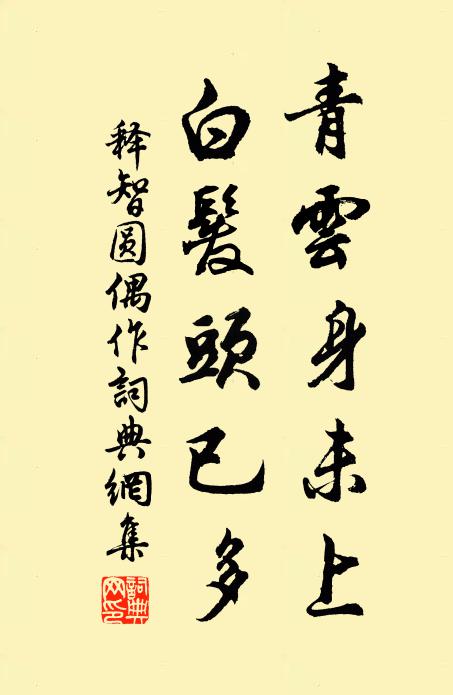 青雲身未上
白髮頭已多
释智圆偶作詞典網集
詞典網印